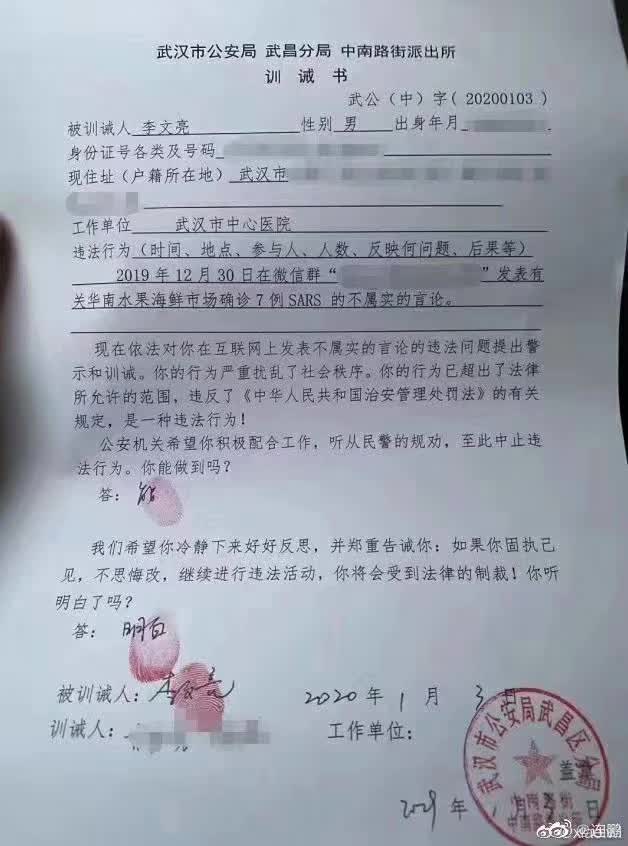 武汉市公安局 武昌分局 中南路街派出所
训 诫 书
武公(中)字( 20200103 )
被训诫人 李文亮 性别 男 出身年月
身份证号各类及号码
现住址(户籍所在地) 武汉市
工作单位 武汉市中心医院
违法行为(时间、地点、参与人、人数、反映何问题、后果等)
2019 年 12 月 30 日在微信群“ ”发表有
关华南水果海鲜市场确诊 7 例 SARS 的不属实的言论。
现在依法对你在互联网上发表不属实的言论的违法问题提出警
示和训诫。你的行为严重扰乱了社会秩序。你的行为已超出了法律
所允许的范围,违反了《中华人民共和国治安管理处罚法》的有关
规定,是一种违法行为!
公安机关希望你积极配合工作,听从民警的规劝,至此中止违
法行为。你能做到吗?
答: 能
我们希望你冷静下来好好反思,并郑重告诫你:如果你固执己
见,不思悔改,继续进行违法活动,你将会受到法律的制裁!你听
明白了吗?
答: 明白
被训诫人: 李文亮 2020 年 1 月 3 日
训诫人: 工作单位:
武汉市公安局武昌区分局
盖章
中南路街
年 月 3 日
@连鹏